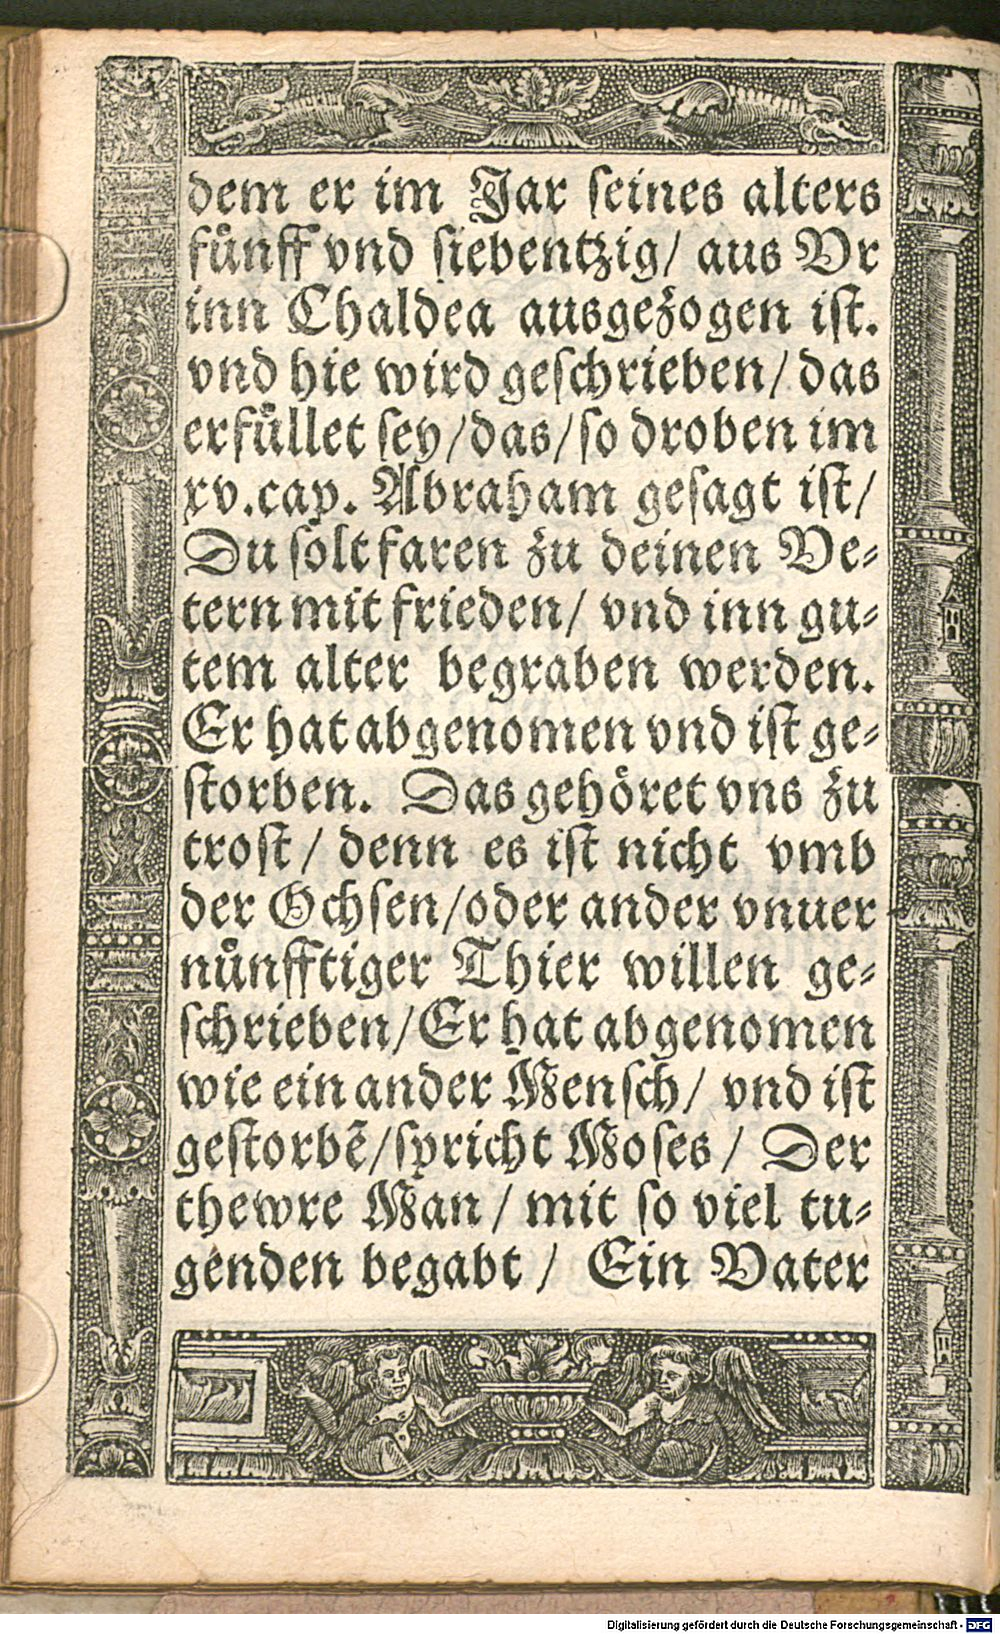 dem er im Jar seines alters
fünff vnd siebentzig/ aus Vr
inn Chaldea ausgezogen ist.
vnd hie wird geschrieben/ das
erfüllet sey/das/so droben im
xv.cap. Abraham gesagt ist/
Du solt faren zu deinen Ve-
tern mit frieden/ vnd inn gu-
tem alter begraben werden.
Er hat abgenomen vnd ist ge-
storben. Das gehöret vns zu
trost/ denn es ist nicht vmb
der Ochsen/oder ander vnuer
nünfftiger Thier willen ge-
schrieben/Er hat abgenomen
wie ein ander Mensch/ vnd ist
gestorbē/spricht Moses/ Der
thewre Man/ mit so viel tu-
genden begabt/ Ein Vater
Digitalisierung gefördert durch die Deutsche Forschungsgemeinschaft - DFG